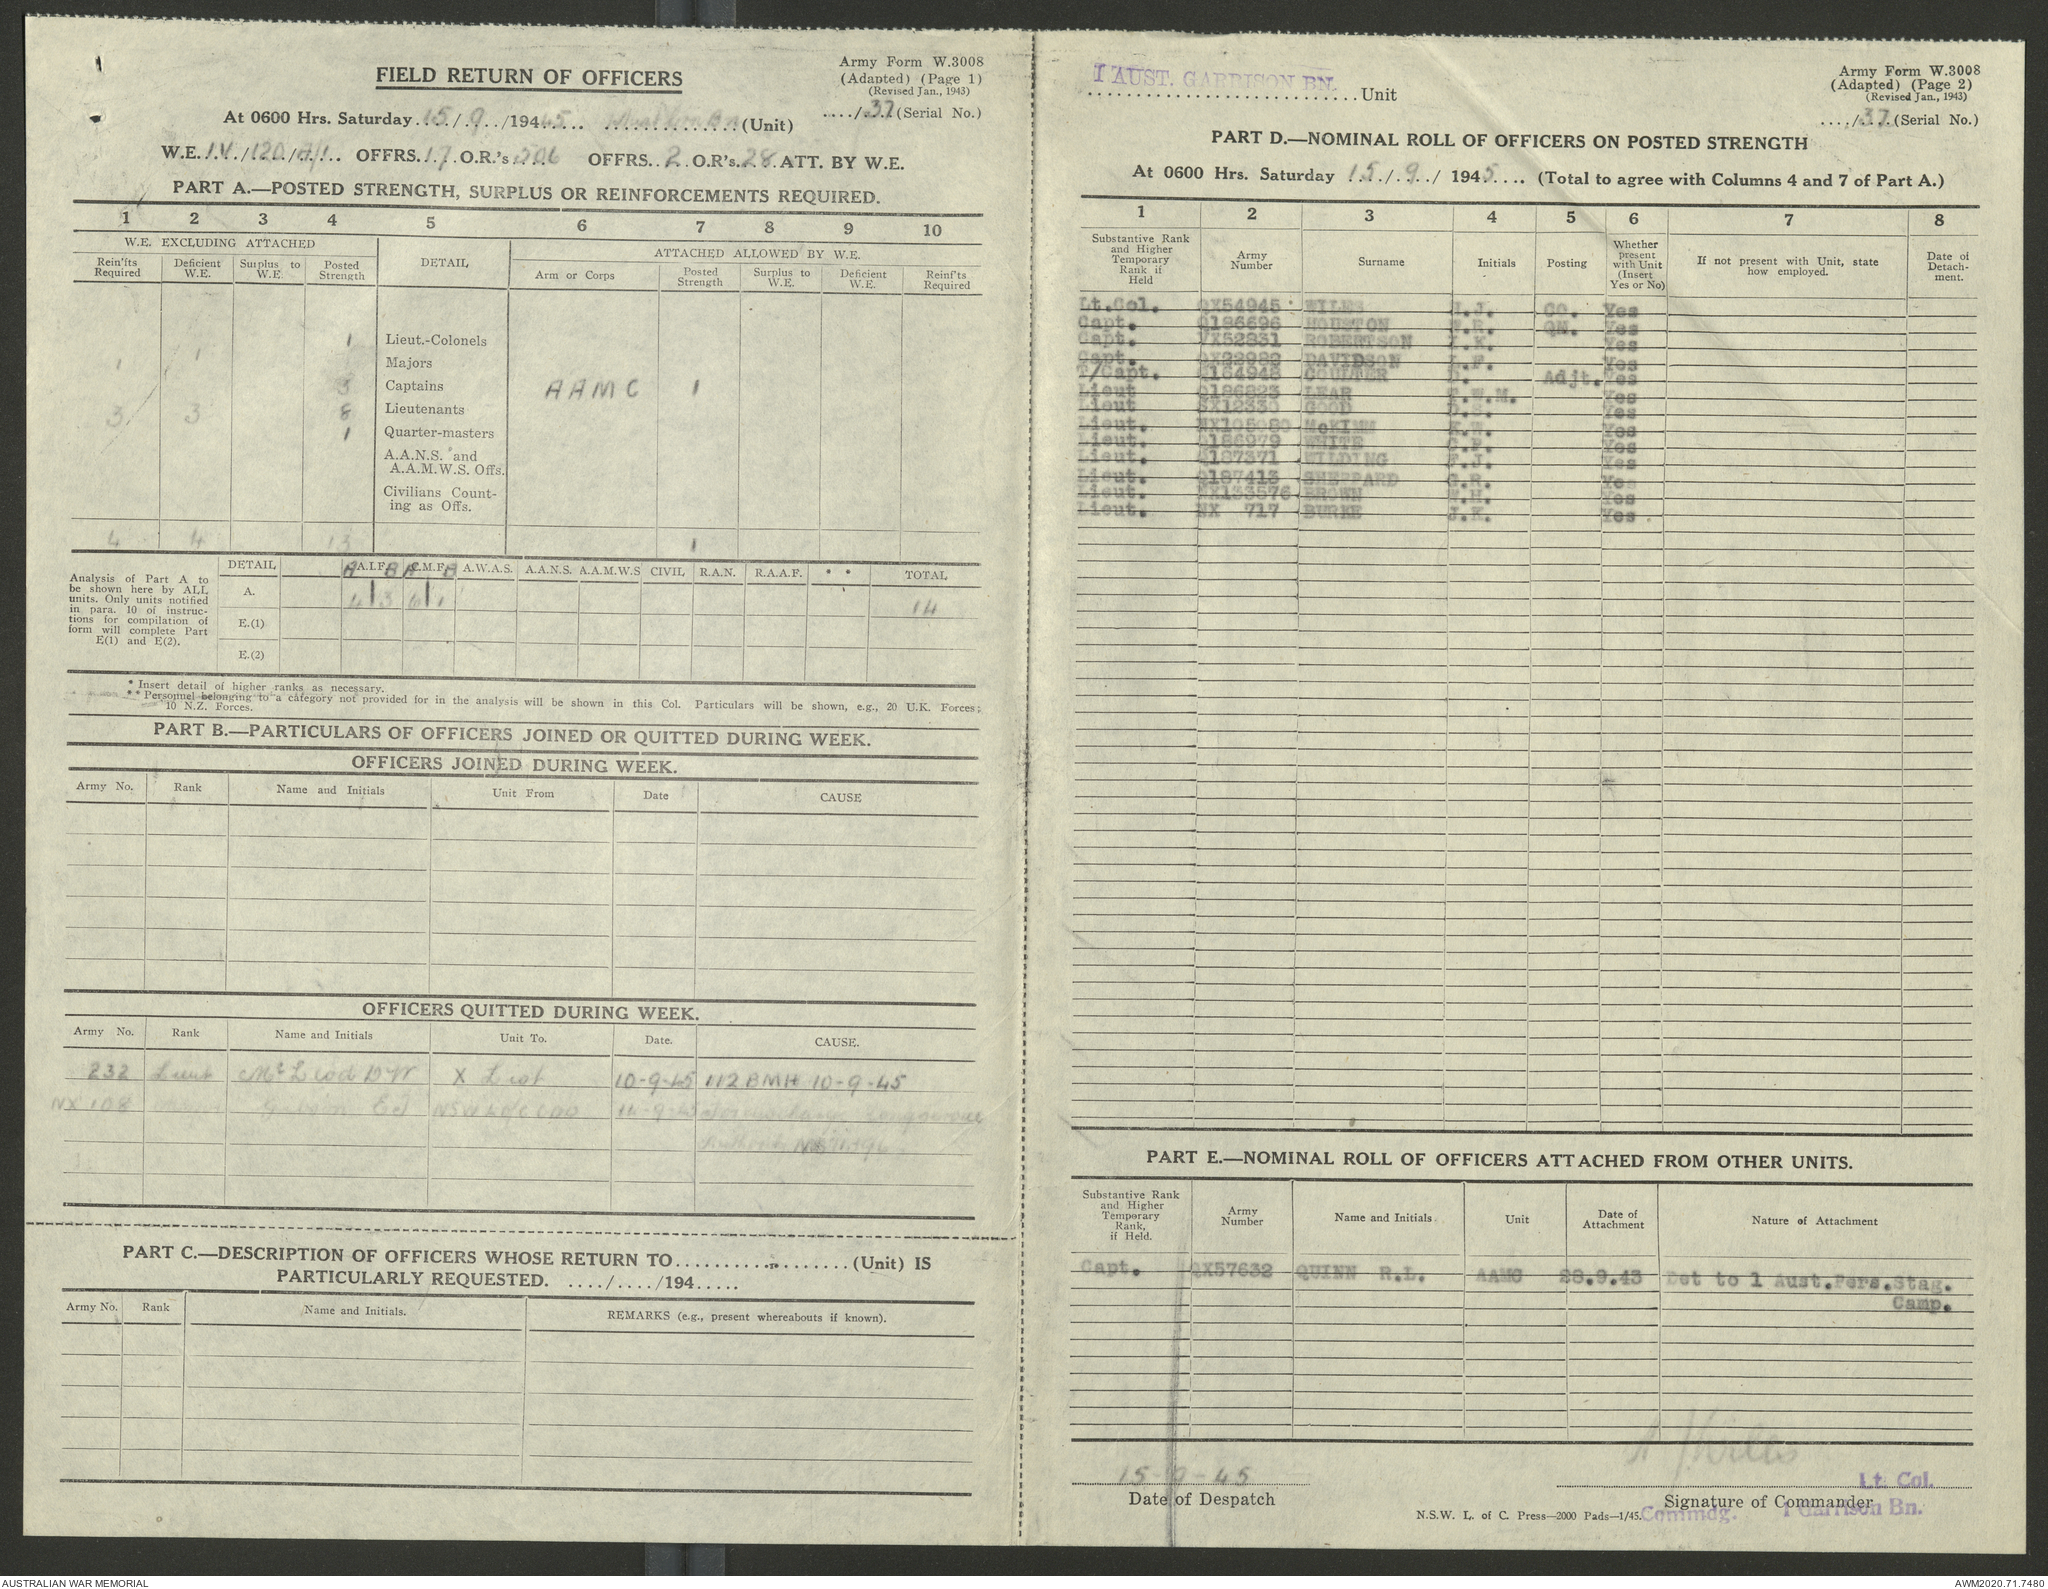 FIELD RETURN OF OFFICERS
Army Form W.3008
(Adapted) (Page 1)
(Revised Jan., 1943)
At 0600 Hrs. Saturday 15/9/1945 (Unit)
..../37 (Serial No.)
W.E. IV/120/ OFFRS. 17 O.R.'s 506 OFFRS. 2 O.R's. 28 ATT. BY W.E.
PART A.—POSTED STRENGTH, SURPLUS OR REINFORCEMENTS REQUIRED.
1 2 3 4 5 6 7 8 9 10
W.E. EXCLUDING ATTACHED
DETAIL
ATTACHED ALLOWED BY W.E.
Rein'fts Required
Deficient W.E.
Surplus to W.E.
Posted Strength
Arm or Corps
Posted Strength
Surplus to W.E.
Deficient W.E.
Reinf'ts Required
1 Lieut.-Colonels
1 1 Majors
3 Captains AAMC 1
3 3 8 Lieutenants
1 Quarter-masters
A.A.N.S. and
A.A.M.W.S. Offs.
Civilians Count-
ing as Offs.
4 4 13 1
Analysis of Part A to
be shown here by ALL
units. Only units notified
in para. 10 of instruc-
tions for compilation of
form will complete Part
E(1) and E(2).
DETAIL A A.I.F. B A C.M.F. B A.W.A.S. A.A.N.S. A.A.M.W.S CIVIL R.A.N. R.A.A.F. * * TOTAL
A. 4 3 6 1 14
E.(1)
E.(2)
* Insert detail of higher ranks as necessary.
** Personnel belonging to a category not provided for in the analysis will be shown in this Col. Particulars will be shown, e.g., 20 U.K. Forces;
10 N.Z. Forces.
PART B.—PARTICULARS OF OFFICERS JOINED OR QUITTED DURING WEEK.
OFFICERS JOINED DURING WEEK.
Army No. Rank Name and Initials Unit From Date CAUSE
OFFICERS QUITTED DURING WEEK.
Army No. Rank Name and Initials Unit To. Date. CAUSE.
232 Lieut McLeod D W X List 10-9-45 112 BMH 10-9-45
NX 108 E J NSW L of C 14-9-45 For discharge
PART C.—DESCRIPTION OF OFFICERS WHOSE RETURN TO.................... (Unit) IS
PARTICULARLY REQUESTED. ..../..../194.....
Army No. Rank Name and Initials. REMARKS (e.g., present whereabouts if known).
1 AUST. GARRISON BN.
Unit
Army Form W.3008
(Adapted) (Page 2)
(Revised Jan., 1943)
..../37 (Serial No.)
PART D.—NOMINAL ROLL OF OFFICERS ON POSTED STRENGTH
At 0600 Hrs. Saturday 15/9/1945 (Total to agree with Columns 4 and 7 of Part A.)
1 2 3 4 5 6 7 8
Substantive Rank
and Higher
Temporary
Rank if
Held
Army
Number
Surname
Initials
Posting
Whether
present
with Unit
(Insert
Yes or No)
If not present with Unit, state
how employed.
Date of
Detach-
ment.
Lt.Col. QX54945 WILES J. CO. Yes
Capt. Q186696 HOUSTON R. QM. Yes
Capt. VX52831 ROBERTSON K. Yes
Capt. QX22982 DAVIDSON F. Yes
T/Capt. Q184948 COULTER Adjt. Yes
Lieut Q186823 LEAR W.M. Yes
Lieut SX12330 GOOD D.S. Yes
Lieut. NX105080 McKIMM K.W. Yes
Lieut. Q186979 WHITE Yes
Lieut. Q187371 WILDING F.J. Yes
Lieut. Q187413 SHEPPARD G.R. Yes
Lieut. NX133576 BROWN W.H. Yes
Lieut. NX 717 BURKE J.K. Yes
PART E.—NOMINAL ROLL OF OFFICERS ATTACHED FROM OTHER UNITS.
Substantive Rank
and Higher
Temporary
Rank,
if Held.
Army
Number
Name and Initials
Unit
Date of
Attachment
Nature of Attachment
Capt. QX57632 QUINN R.L. AAMC 28.9.43 Det to 1 Aust.Pers.Stag.
Camp.
15-9-45
Date of Despatch
Lt. Col.
Signature of Commander
Commdg. 1 Garrison Bn.
N.S.W. L. of C. Press—2000 Pads—1/45.
AUSTRALIAN WAR MEMORIAL
AWM2020.71.7480